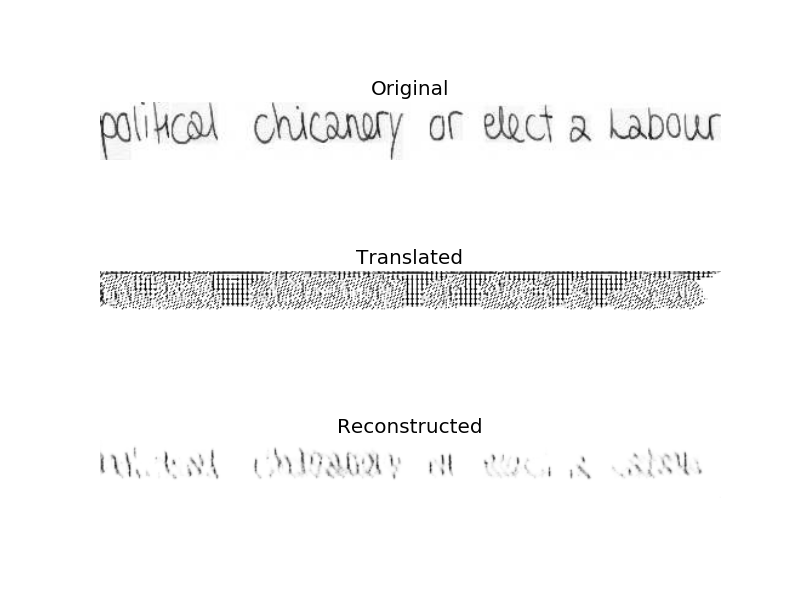 Original
political chicanery or elect a Labour
Translated
Reconstructed